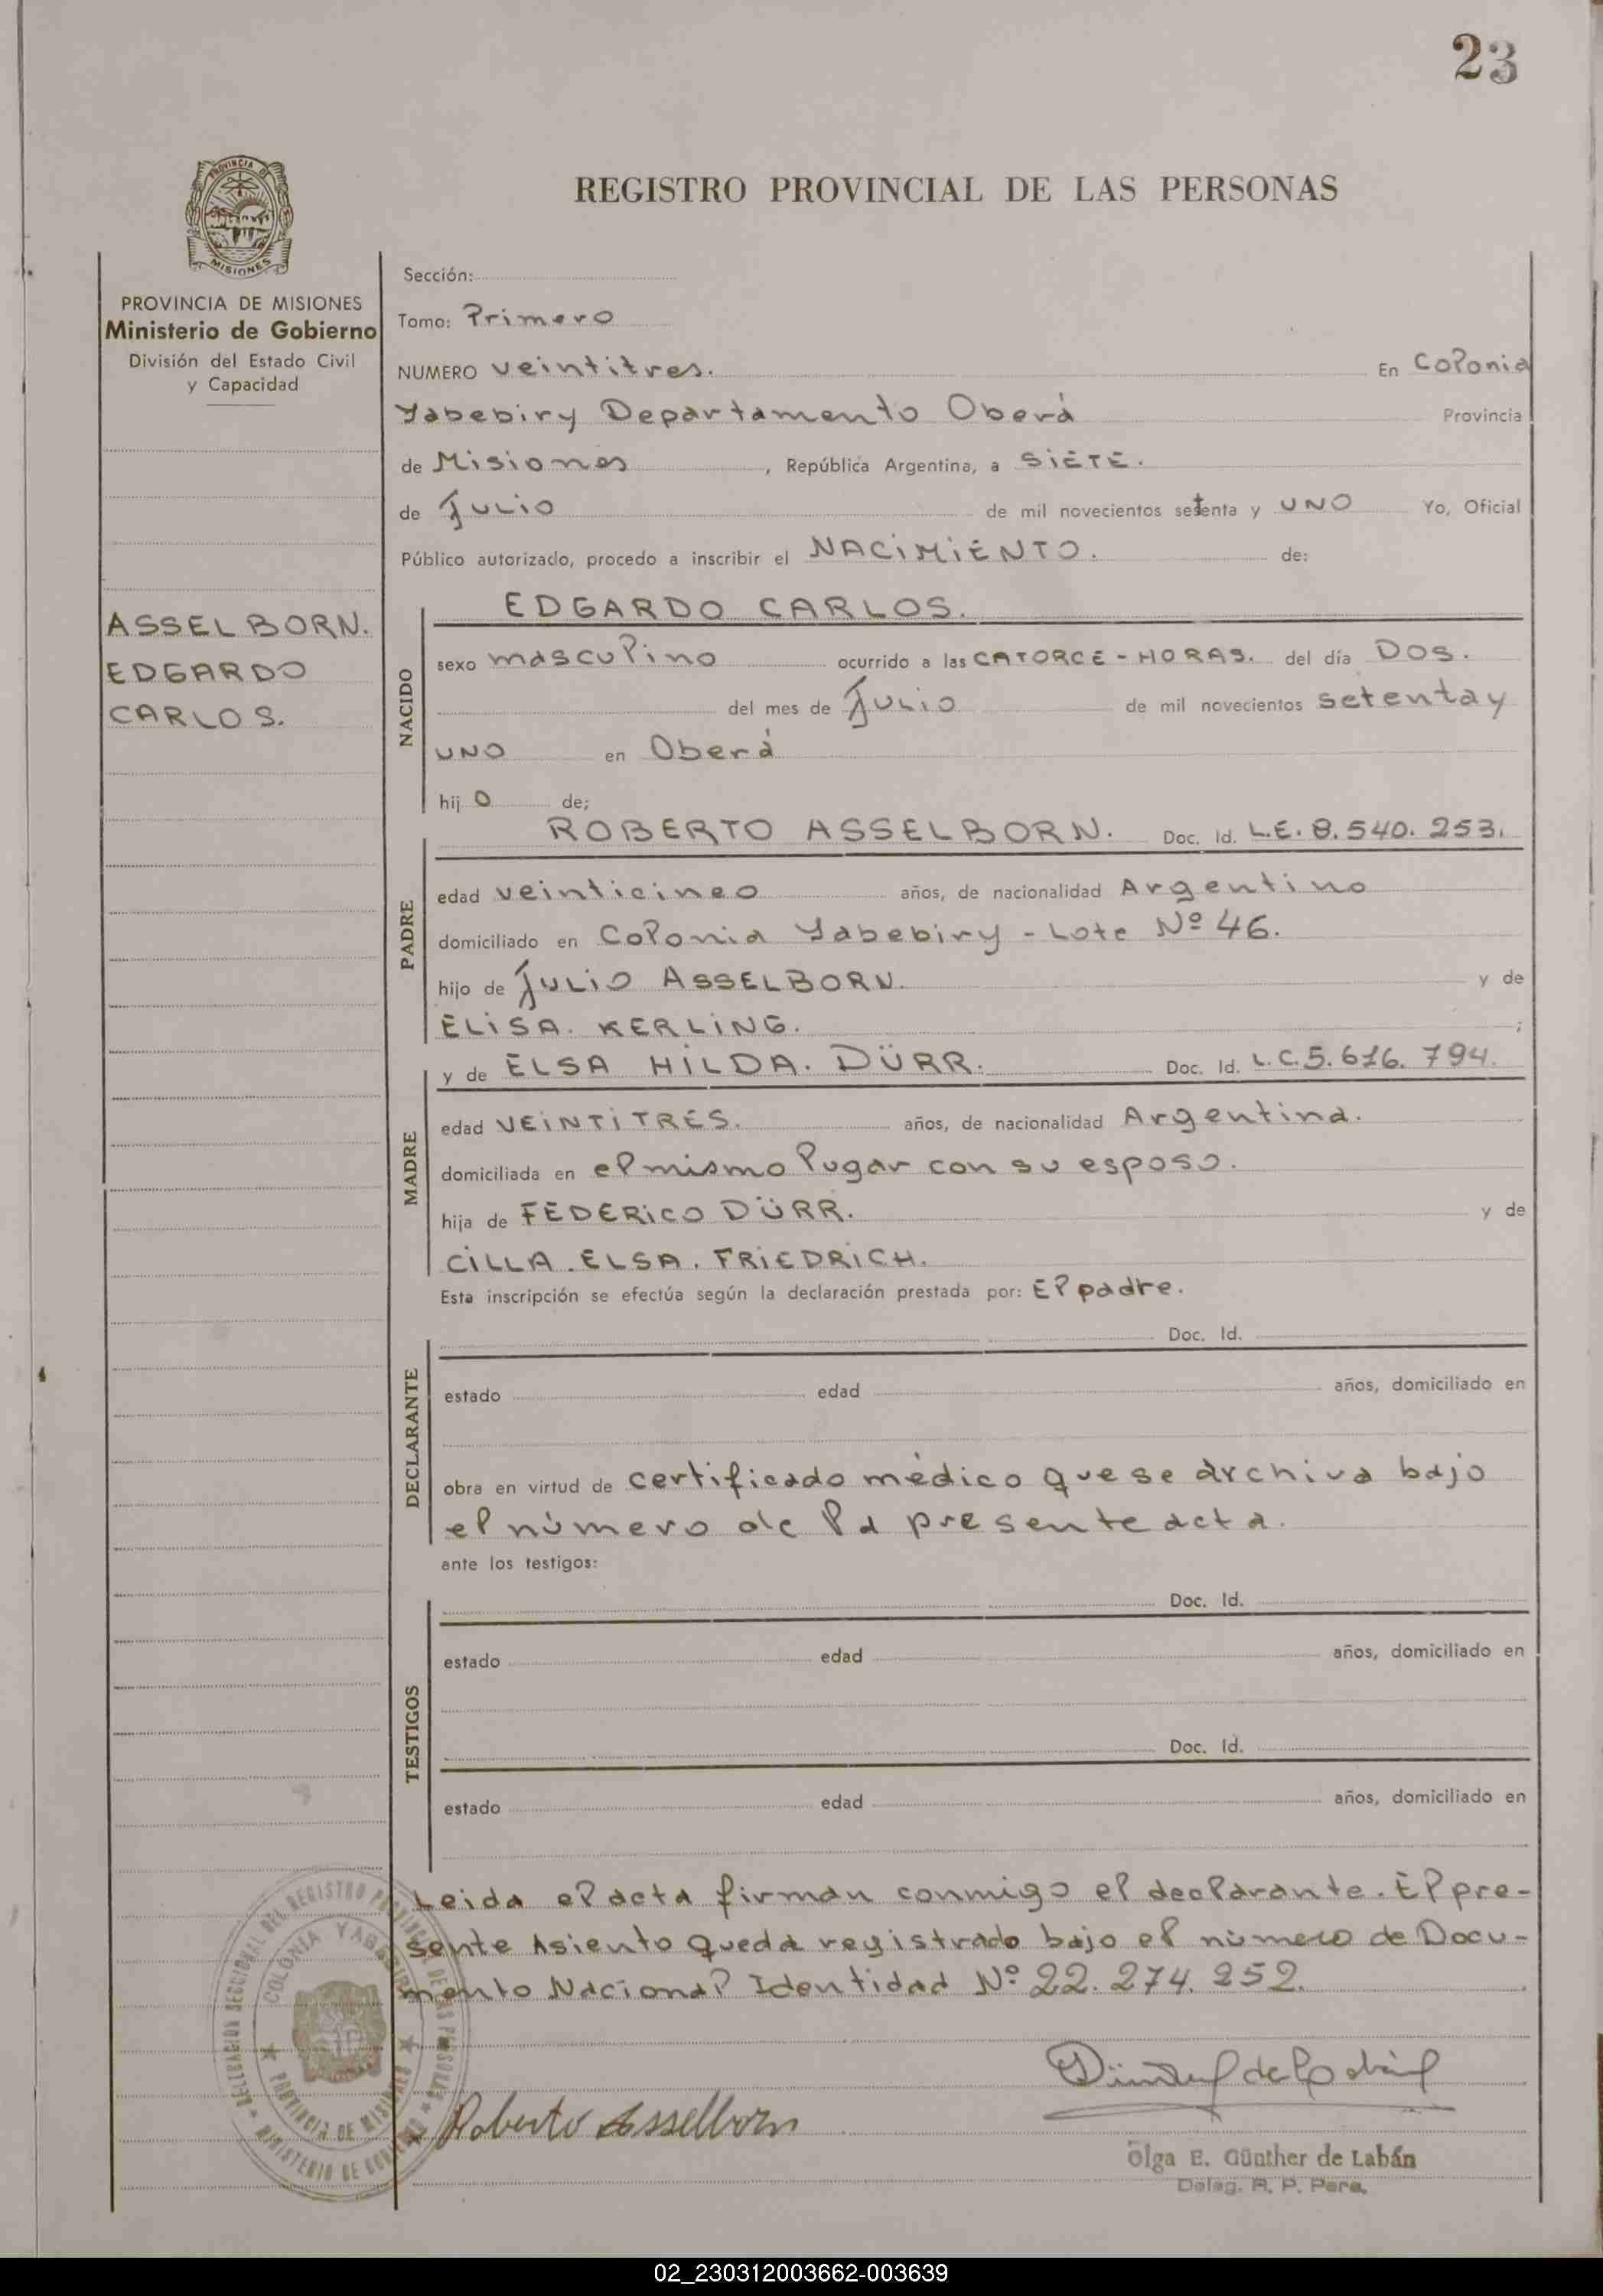 23
PROVINCIA DE
MISIONES
REGISTRO PROVINCIAL DE LAS PERSONAS
PROVINCIA DE MISIONES
Ministerio de Gobierno
División del Estado Civil
y Capacidad
ASSELBORN.
EDGARDO
CARLOS.
Sección:
Tomo: Primero
NUMERO veintitres. En Colonia
Yabebiry Departamento Oberá Provincia
de Misiones, República Argentina, a SiETE.
de Julio de mil novecientos setenta y UNO Yo, Oficial
Público autorizado, procedo a inscribir el NACiMiENTO. de:
NACIDO
EDGARDO CARLOS.
sexo masculino ocurrido a las CATORCE - HORAS. del día DOS.
del mes de Julio de mil novecientos setentay
UNO en Oberá
hijo de;
PADRE
ROBERTO ASSELBORN. Doc. Id. L.E. 8.540.253.
edad veinticinco años, de nacionalidad Argentino
domiciliado en Colonia Yabebiry - Lote Nº 46.
hijo de JULiO ASSELBORN. y de
ELiSA. KERLiNG. ;
MADRE
y de ELSA HiLDA. DÜRR. Doc. Id. L.C. 5.616.794.
edad VEiNTiTRES. años, de nacionalidad Argentina.
domiciliada en el mismo lugar con su esposo.
hija de FEDERiCO DÜRR. y de
CiLLA. ELSA. FRiEDRiCH.
Esta inscripción se efectúa según la declaración prestada por: El padre.
DECLARANTE
Doc. Id.
estado edad años, domiciliado en
obra en virtud de certificado médico que se archiva bajo
el número de la presente acta.
ante los testigos:
TESTIGOS
Doc. Id.
estado edad años, domiciliado en
Doc. Id.
estado edad años, domiciliado en
Leida el acta firman conmigo el declarante. El pre-
sente Asiento queda registrado bajo el número de Docu-
mento Nacional Identidad Nº 22.274.252.
DELEGACION SECCIONAL DEL REGISTRO PROVINCIAL DE LAS PERSONAS
MINISTERIO DE GOBIERNO
COLONIA YABEBIRY
PROVINCIA DE MISIONES
Roberto Asselborn
Olga E. Günther de Labán
Deleg. R. P. Pers.
02_230312003662-003639